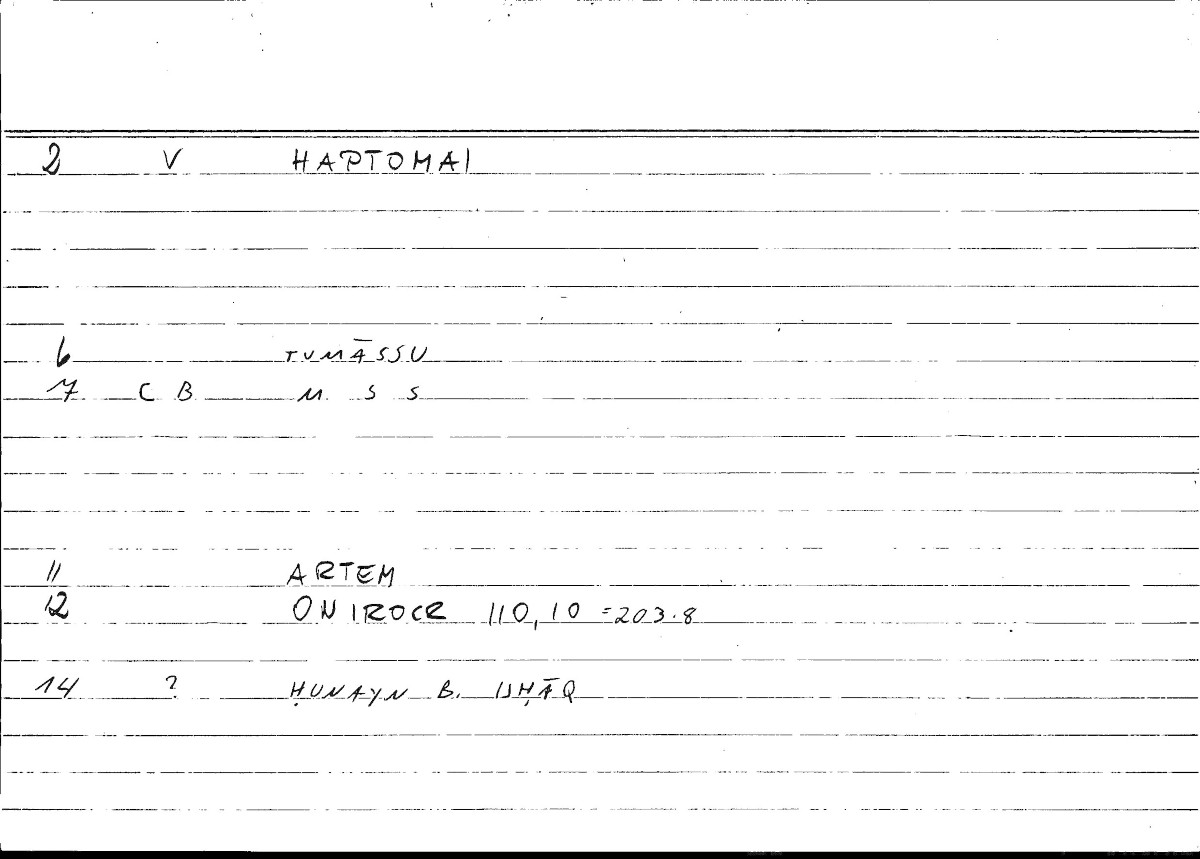 2 V HAPTOMAI
6 TUMĀSSU
7 C B M S S
11 ARTEM
12 ONIROCR 110,10 = 203.8
14 ? ḤUNAYN B. ISḤĀQ